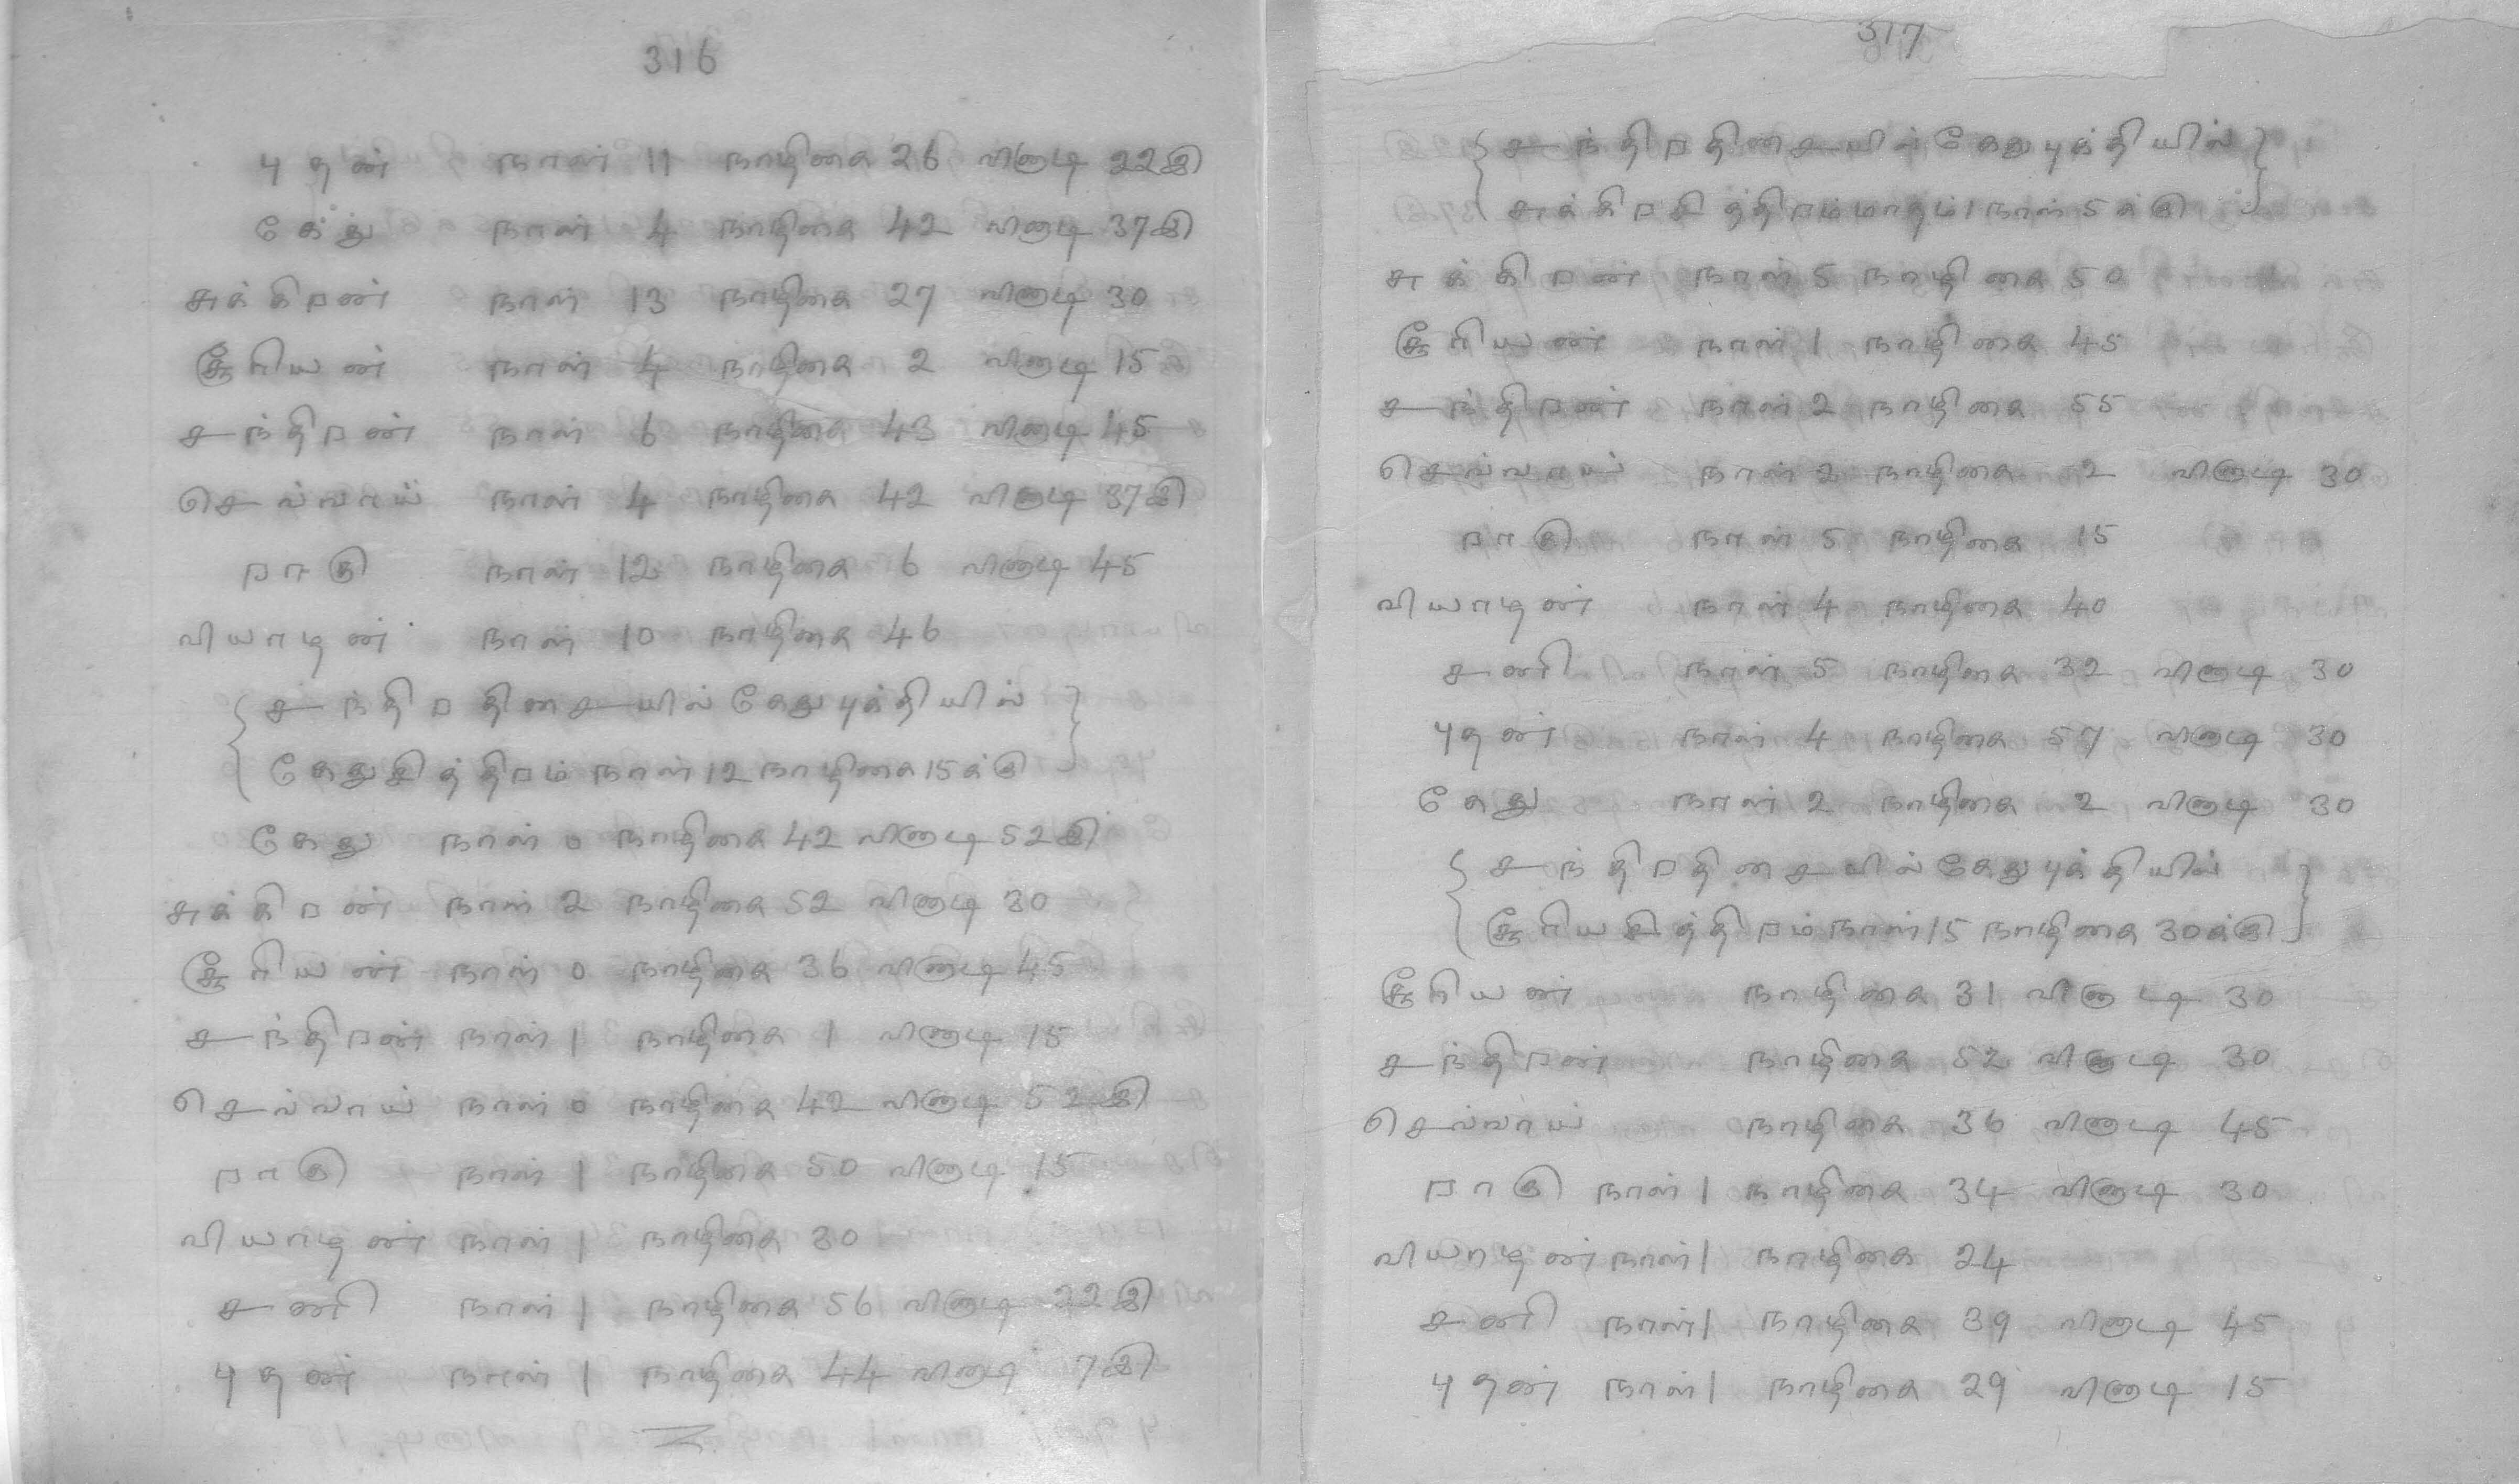 316
புதன் நாள் 11 நாழிகை 26 வினாடி 22இ
கேது நாள் 4 நாழிகை 42 வினாடி 37இ
சுக்கிறன் நாள் 13 நாழிகை 27 வினாடி 30
சூரியன் நாள் 4 நாழிகை 2 வினாடி 15
சந்திறன் நாள் 6 நாழிகை 43 வினாடி 45
செவ்வாய் நாள் 4 நாழிகை 42 வினாடி 37இ
றாகு நாள் 12 நாழிகை 6 வினாடி 45
வியாழன் நாள் 10 நாழிகை 46
{சந்திறதிசையில் கேதுபுக்தியில்}
{கேதுசித்திறம் நாள் 12 நாழிகை 15க்கு}
கேது நாள் 0 நாழிகை 42 வினாடி 52இ
சுக்கிறன் நாள் 2 நாழிகை 52 வினாடி 30
சூரியன் நாள் 0 நாழிகை 36 வினாடி 45
சந்திறன் நாள் 1 நாழிகை 1 வினாடி 15
செவ்வாய் நாள் 0 நாழிகை 42 வினாடி 52இ
றாகு நாள் 1 நாழிகை 50 வினாடி 15
வியாழன் நாள் 1 நாழிகை 30
சனி நாள் 1 நாழிகை 56 வினாடி 22இ
புதன் நாள் 1 நாழிகை 44 வினாடி 7இ
317
{சந்திறதிசையில் கேதுபுக்தியில்}
{சுக்கிறசித்திறம் மாதம் 1 நாள் 5க்கு}
சுக்கிறன் நாள் 5 நாழிகை 50
சூரியன் நாள் 1 நாழிகை 45
சந்திறன் நாள் 2 நாழிகை 55
செவ்வாய் நாள் 2 நாழிகை 2 வினாடி 30
றாகு நாள் 5 நாழிகை 15
வியாழன் நாள் 4 நாழிகை 40
சனி நாள் 5 நாழிகை 32 வினாடி 30
புதன் நாள் 4 நாழிகை 57 வினாடி 30
கேது நாள் 2 நாழிகை 2 வினாடி 30
{சந்திறதிசையில் கேதுபுக்தியில்}
{சூரியசித்திறம் நாள் 15 நாழிகை 30க்கு}
சூரியன் நாழிகை 31 வினாடி 30
சந்திறன் நாழிகை 52 வினாடி 30
செவ்வாய் நாழிகை 36 வினாடி 45
றாகு நாள் 1 நாழிகை 34 வினாடி 30
வியாழன் நாள் 1 நாழிகை 24
சனி நாள் 1 நாழிகை 39 வினாடி 45
புதன் நாள் 1 நாழிகை 29 வினாடி 15